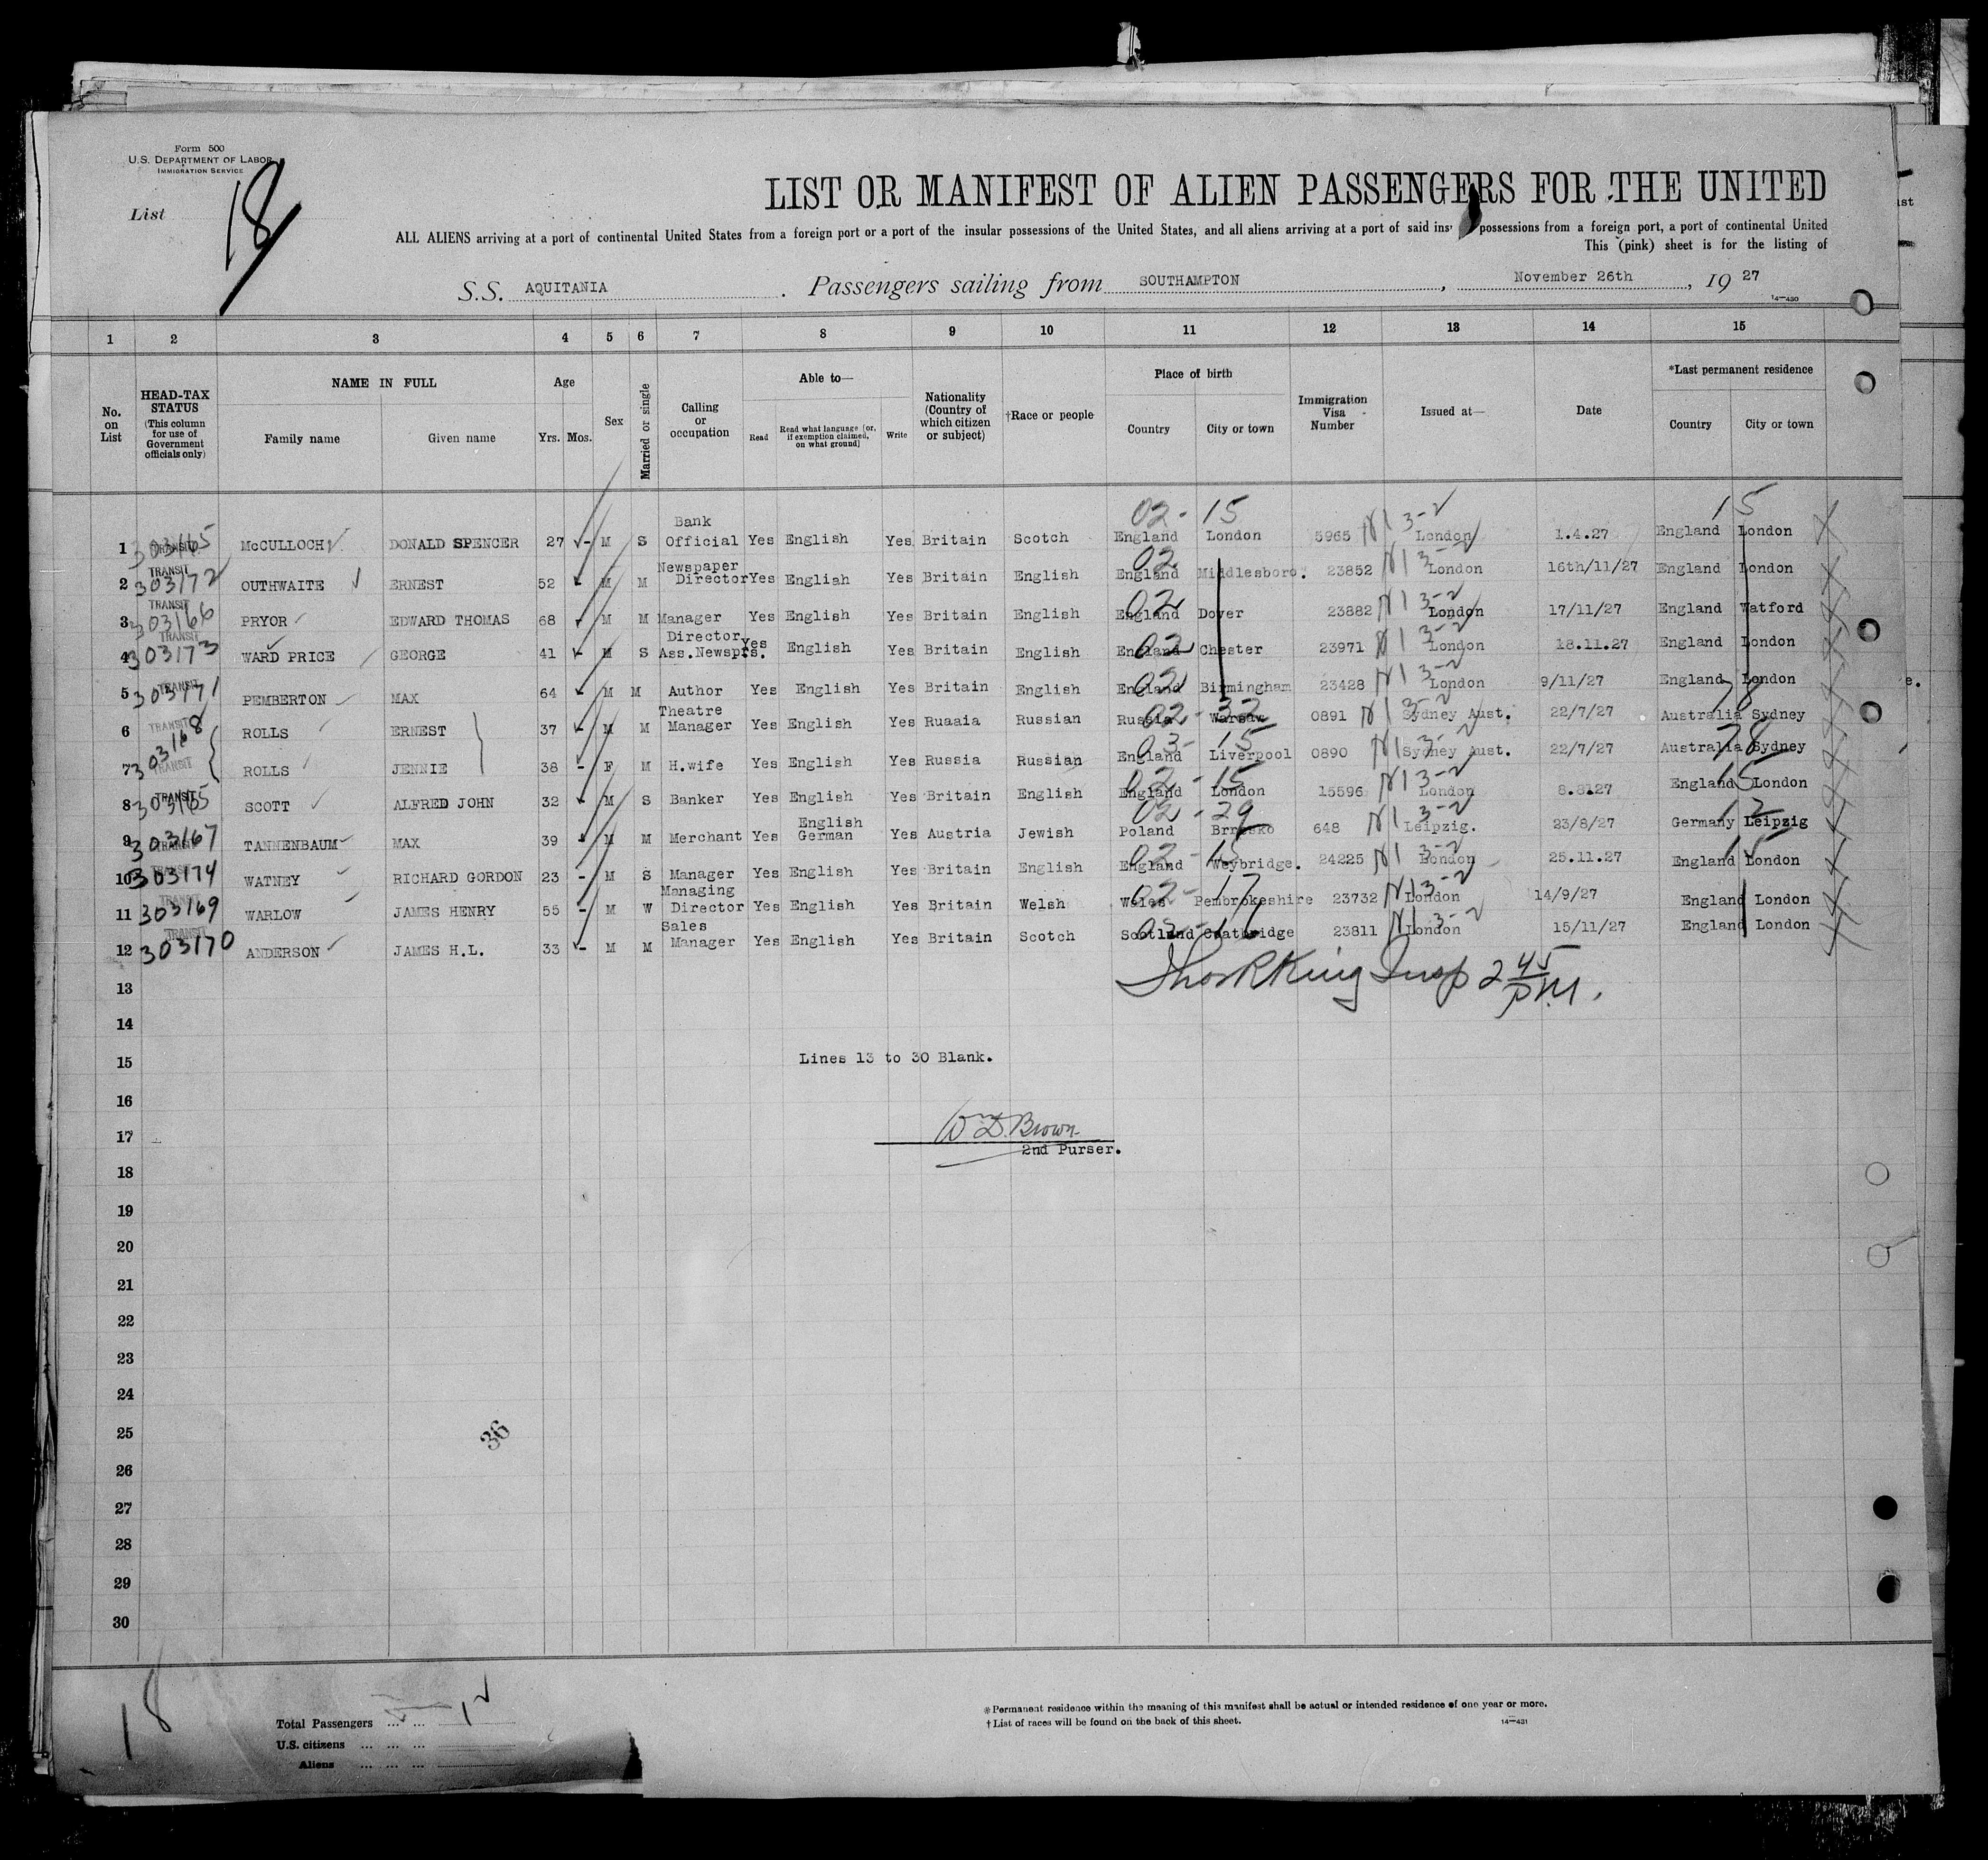 Form 500
U.S. DEPARTMENT OF LABOR
IMMIGRATION SERVICE
List 18
LIST OR MANIFEST OF ALIEN PASSENGERS FOR THE UNITED
ALL ALIENS arriving at a port of continental United States from a foreign port or a port of the insular possessions of the United States, and all aliens arriving at a port of said ins possessions from a foreign port, a port of continental United
This (pink) sheet is for the listing of
S.S. AQUITANIA . Passengers sailing from SOUTHAMPTON , November 26th , 19 27
14—430
1 2 3 4 5 6 7 8 9 10 11 12 13 14 15
No. on List
HEAD-TAX STATUS (This column for use of Government officials only)
NAME IN FULL
Family name Given name
Age
Yrs. Mos.
Sex
Married or single
Calling or occupation
Able to—
Read Read what language [or, if exemption claimed, on what ground] Write
Nationality (Country of which citizen or subject)
†Race or people
Place of birth
Country City or town
Immigration Visa Number
Issued at—
Date
*Last permanent residence
Country City or town
02 - 15 15
1 TRANSIT 303165 McCULLOCH DONALD SPENCER 27 - M S Bank Official Yes English Yes Britain Scotch England London 5965 N1 3-2 London 1.4.27 England London
2 TRANSIT 303172 OUTHWAITE ERNEST 52 M M Newspaper Director Yes English Yes Britain English 02 England Middlesboro. 23852 N1 3-2 London 16th/11/27 England London
3 TRANSIT 303166 PRYOR EDWARD THOMAS 68 M M Manager Yes English Yes Britain English 02 England Dover 23882 N1 3-2 London 17/11/27 England Watford
4 TRANSIT 303173 WARD PRICE GEORGE 41 - M S Director Ass.Newsprs. Yes English Yes Britain English 02 England Chester 23971 N1 3-2 London 18.11.27 England London
5 TRANSIT 303171 PEMBERTON MAX 64 M M Author Yes English Yes Britain English 02 England Birmingham 23428 N1 3-2 London 9/11/27 England London
6 TRANSIT 303168 ROLLS ERNEST 37 - M M Theatre Manager Yes English Yes Ruaaia Russian 02 - 32 Russia Warsaw 0891 N1 3-2 Sydney Aust. 22/7/27 78 Australia Sydney
7 TRANSIT ROLLS JENNIE 38 - F M H.wife Yes English Yes Russia Russian 03 - 15 England Liverpool 0890 N1 3-2 Sydney Aust. 22/7/27 78 Australia Sydney
8 TRANSIT 303165 SCOTT ALFRED JOHN 32 - M S Banker Yes English Yes Britain English 02 - 15 England London 15596 N1 3-2 London 8.8127 15 England London
9 TRANSIT 303167 TANNENBAUM MAX 39 - M M Merchant Yes English German Yes Austria Jewish 02 - 29 Poland Brzesko 648 N1 3-2 Leipzig. 23/8/27 12 Germany Leipzig
10 TRANSIT 303174 WATNEY RICHARD GORDON 23 - M S Manager Yes English Yes Britain English 02 - 15 England Weybridge. 24225 N1 3-2 London 25.11.27 15 England London
11 TRANSIT 303169 WARLOW JAMES HENRY 55 - M W Managing Director Yes English Yes Britain Welsh 02 - 17 Wales Pembrokeshire 23732 N1 3-2 London 14/9/27 England London
12 TRANSIT 303170 ANDERSON JAMES H.L. 33 - M M Sales Manager Yes English Yes Britain Scotch 02 - 16 Scotland Coatbridge 23811 N1 3-2 London 15/11/27 England London
13
King Insp 2 45 P.M.
14
15
Lines 13 to 30 Blank.
16
17
Wm D. Brown
2nd Purser.
18
19
20
21
22
23
24
25
36
26
27
28
29
30
18
Total Passengers ... ... 12
U.S. citizens ... ... ...
Aliens ... ... ...
*Permanent residence within the meaning of this manifest shall be actual or intended residence of one year or more.
†List of races will be found on the back of this sheet.
14—431